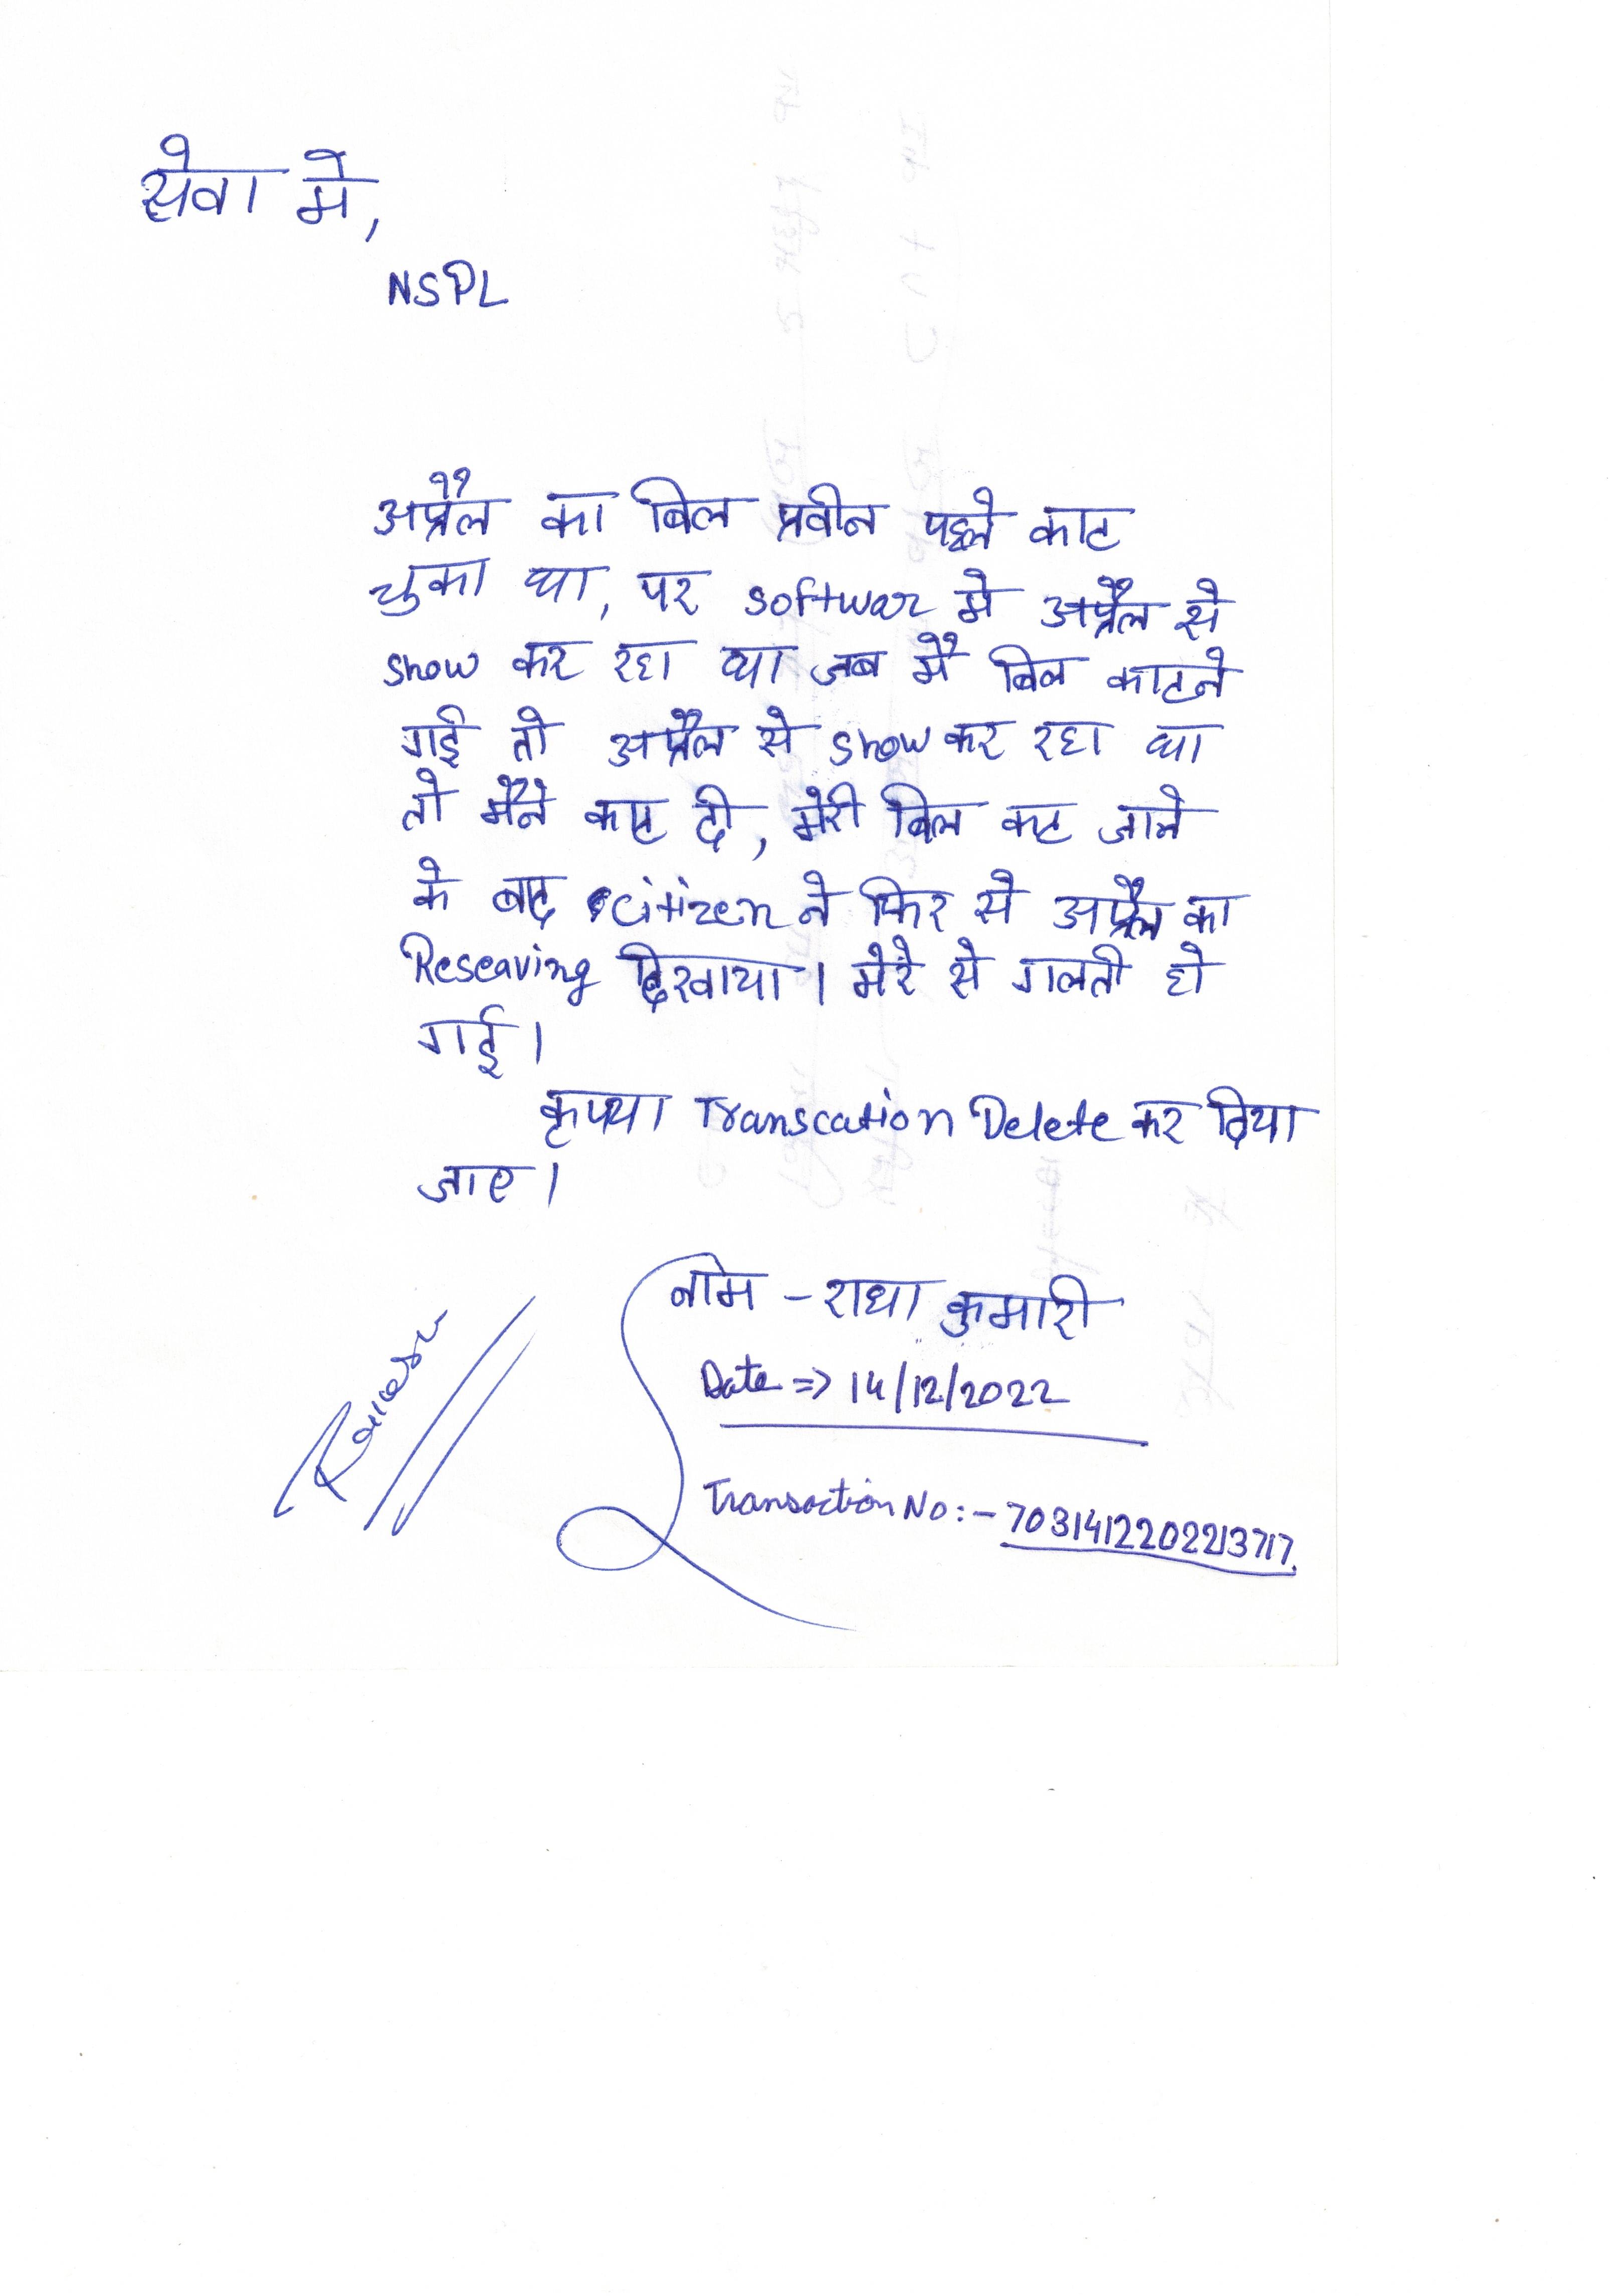 सेवा मे,
NSPL
अप्रैल का बिल प्रवीन पहले काट
चुका था, पर softwar मे अप्रैल से
show कर रहा था जब मै बिल काटने
गई तो अप्रैल से show कर रहा था
तो मैने काट दी, मेरी बिल कट जाने
के बाद citizen ने फिर से अप्रैल का
Reseaving दिखाया। मेरे से गलती हो
गई।
कृपया Transcation Delete कर दिया
जाए।
नाम - राधा कुमारी
Date => 14/12/2022
Transaction No:- 7031412202213717.